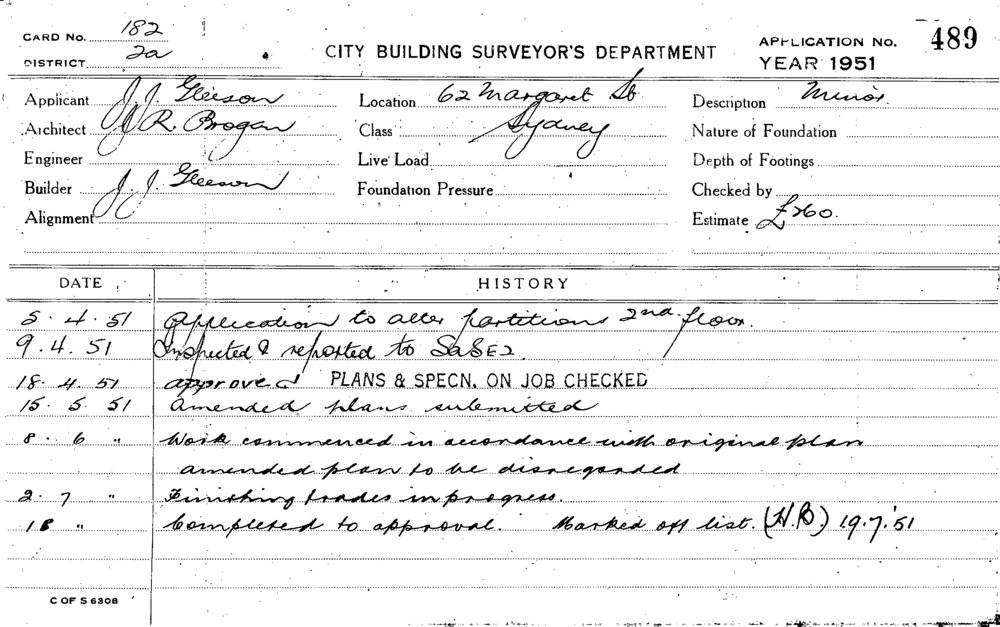 CARD No. 182
DISTRICT 2a
CITY BUILDING SURVEYOR'S DEPARTMENT
APPLICATION No. 489
YEAR 1951
Applicant J. J. Gleeson
Architect J R. Brogan
Engineer
Builder J. J. Gleeson
Alignment
Location 62 Margaret St.
Class Sydney
Live Load
Foundation Pressure
Description Minor.
Nature of Foundation
Depth of Footings
Checked by
Estimate £260.
DATE HISTORY
5. 4. 51 Application to alter partitions 2nd floor.
9. 4. 51 Inspected & reported to
18. 4. 51 approved PLANS & SPECN. ON JOB CHECKED
15. 5. 51 Amended plans submitted
8. 6 " Work commenced in accordance with original plan
amended plan to be disregarded
2. 7 " Finishing trades in progress.
18 " Completed to approval. Marked off list. (H.B.) 19.7.'51
C OF S 6308